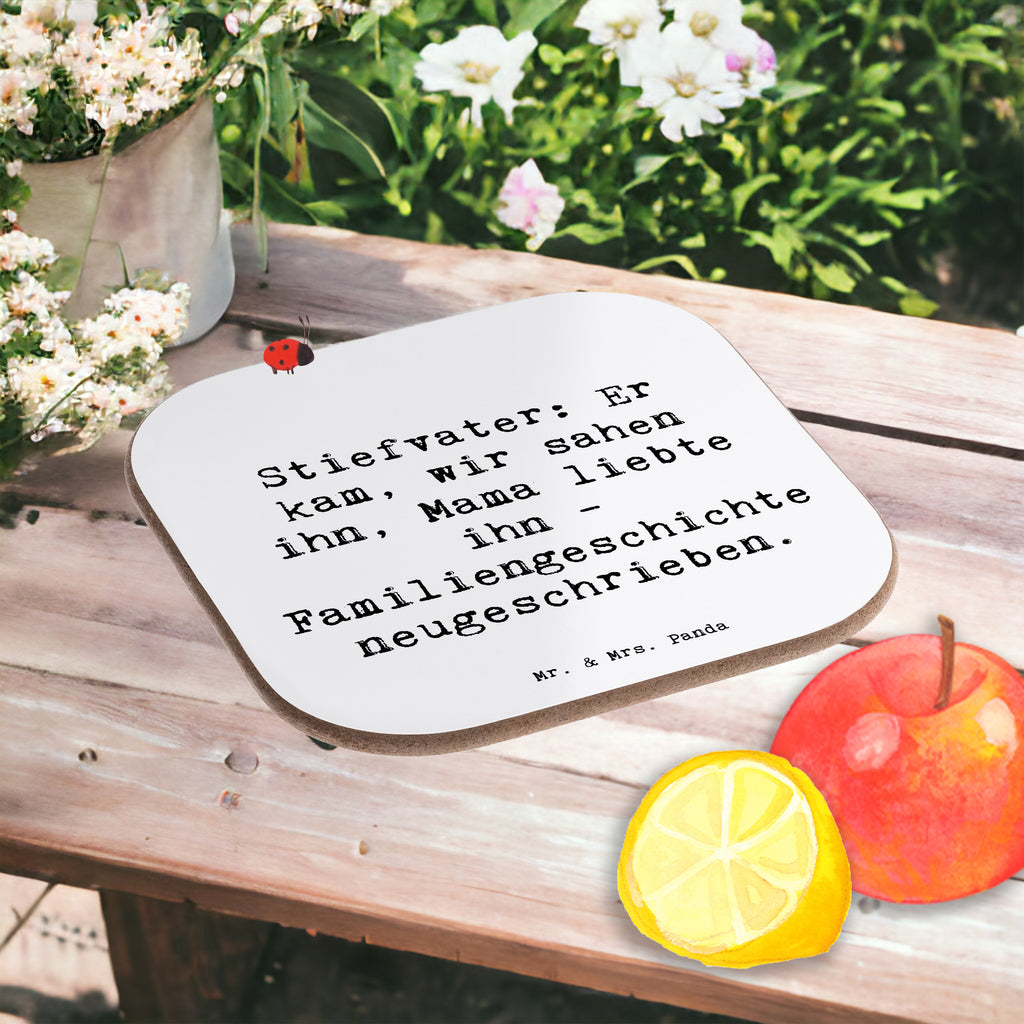 Stiefvater: Er
kam, wir sahen
ihn, Mama liebte
ihn -
Familiengeschichte
neugeschrieben.
Mr. & Mrs. Panda